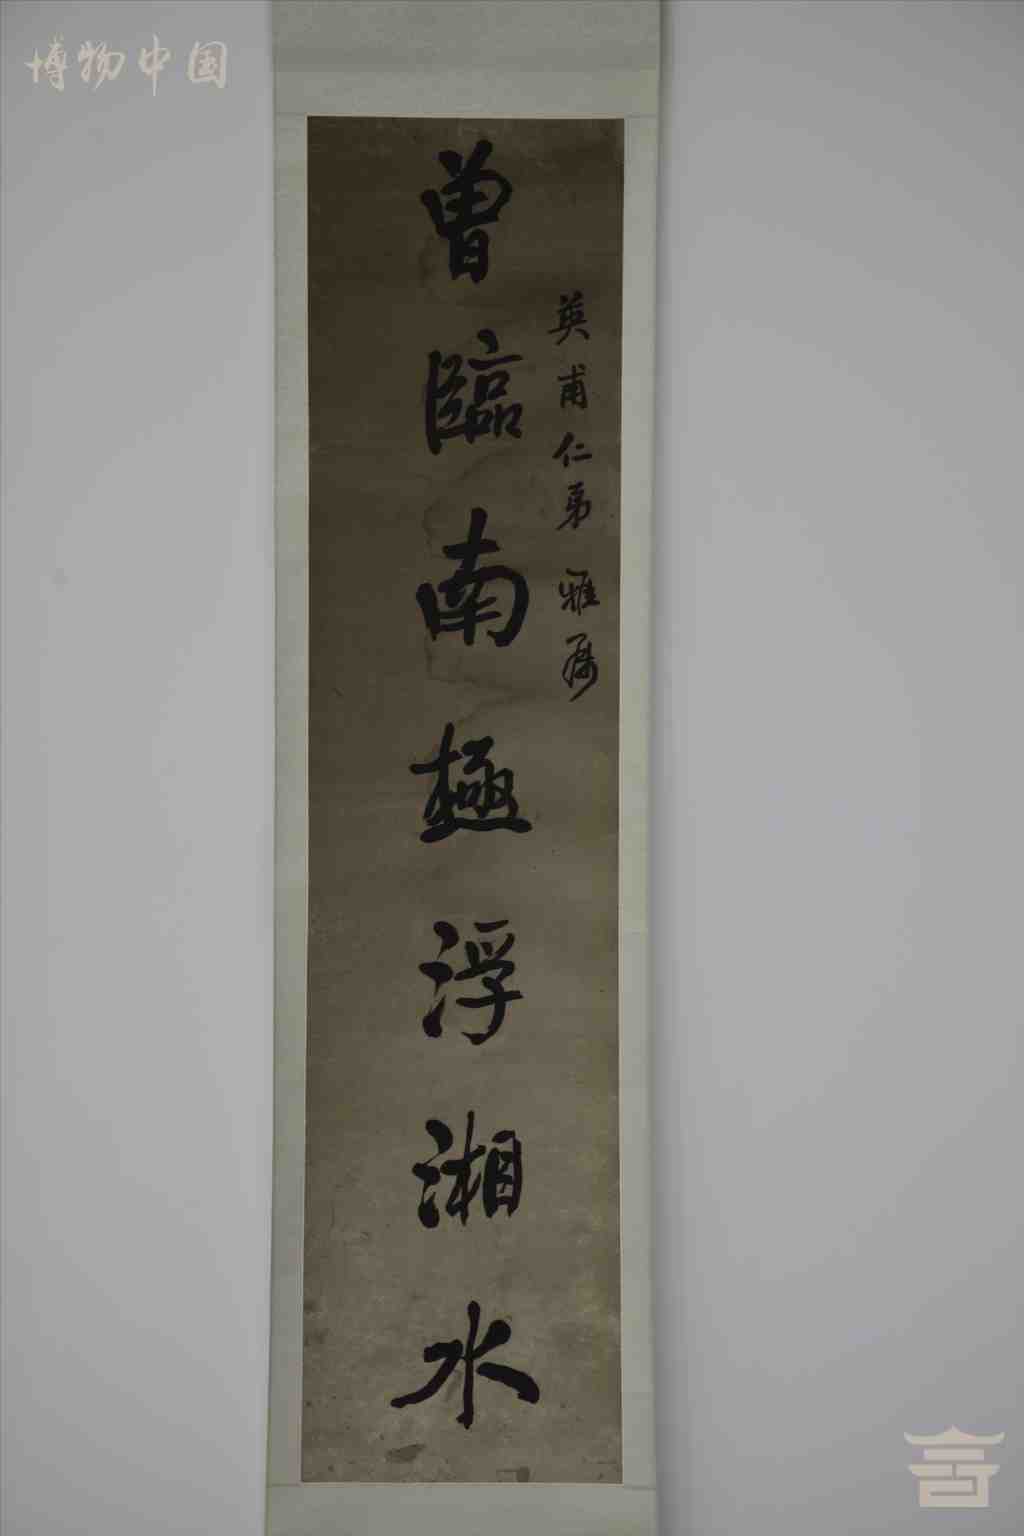 博物中国
英甫仁弟 雅屬
曾臨南極浮湘水